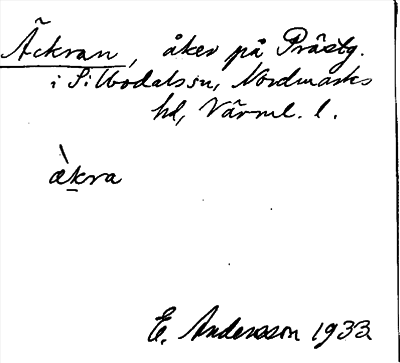 Äckran, åker på Prästg.
i Silbodals sn, Nordmarks
hd, Värml. l.
æ̀kra
E. Andersson 1933